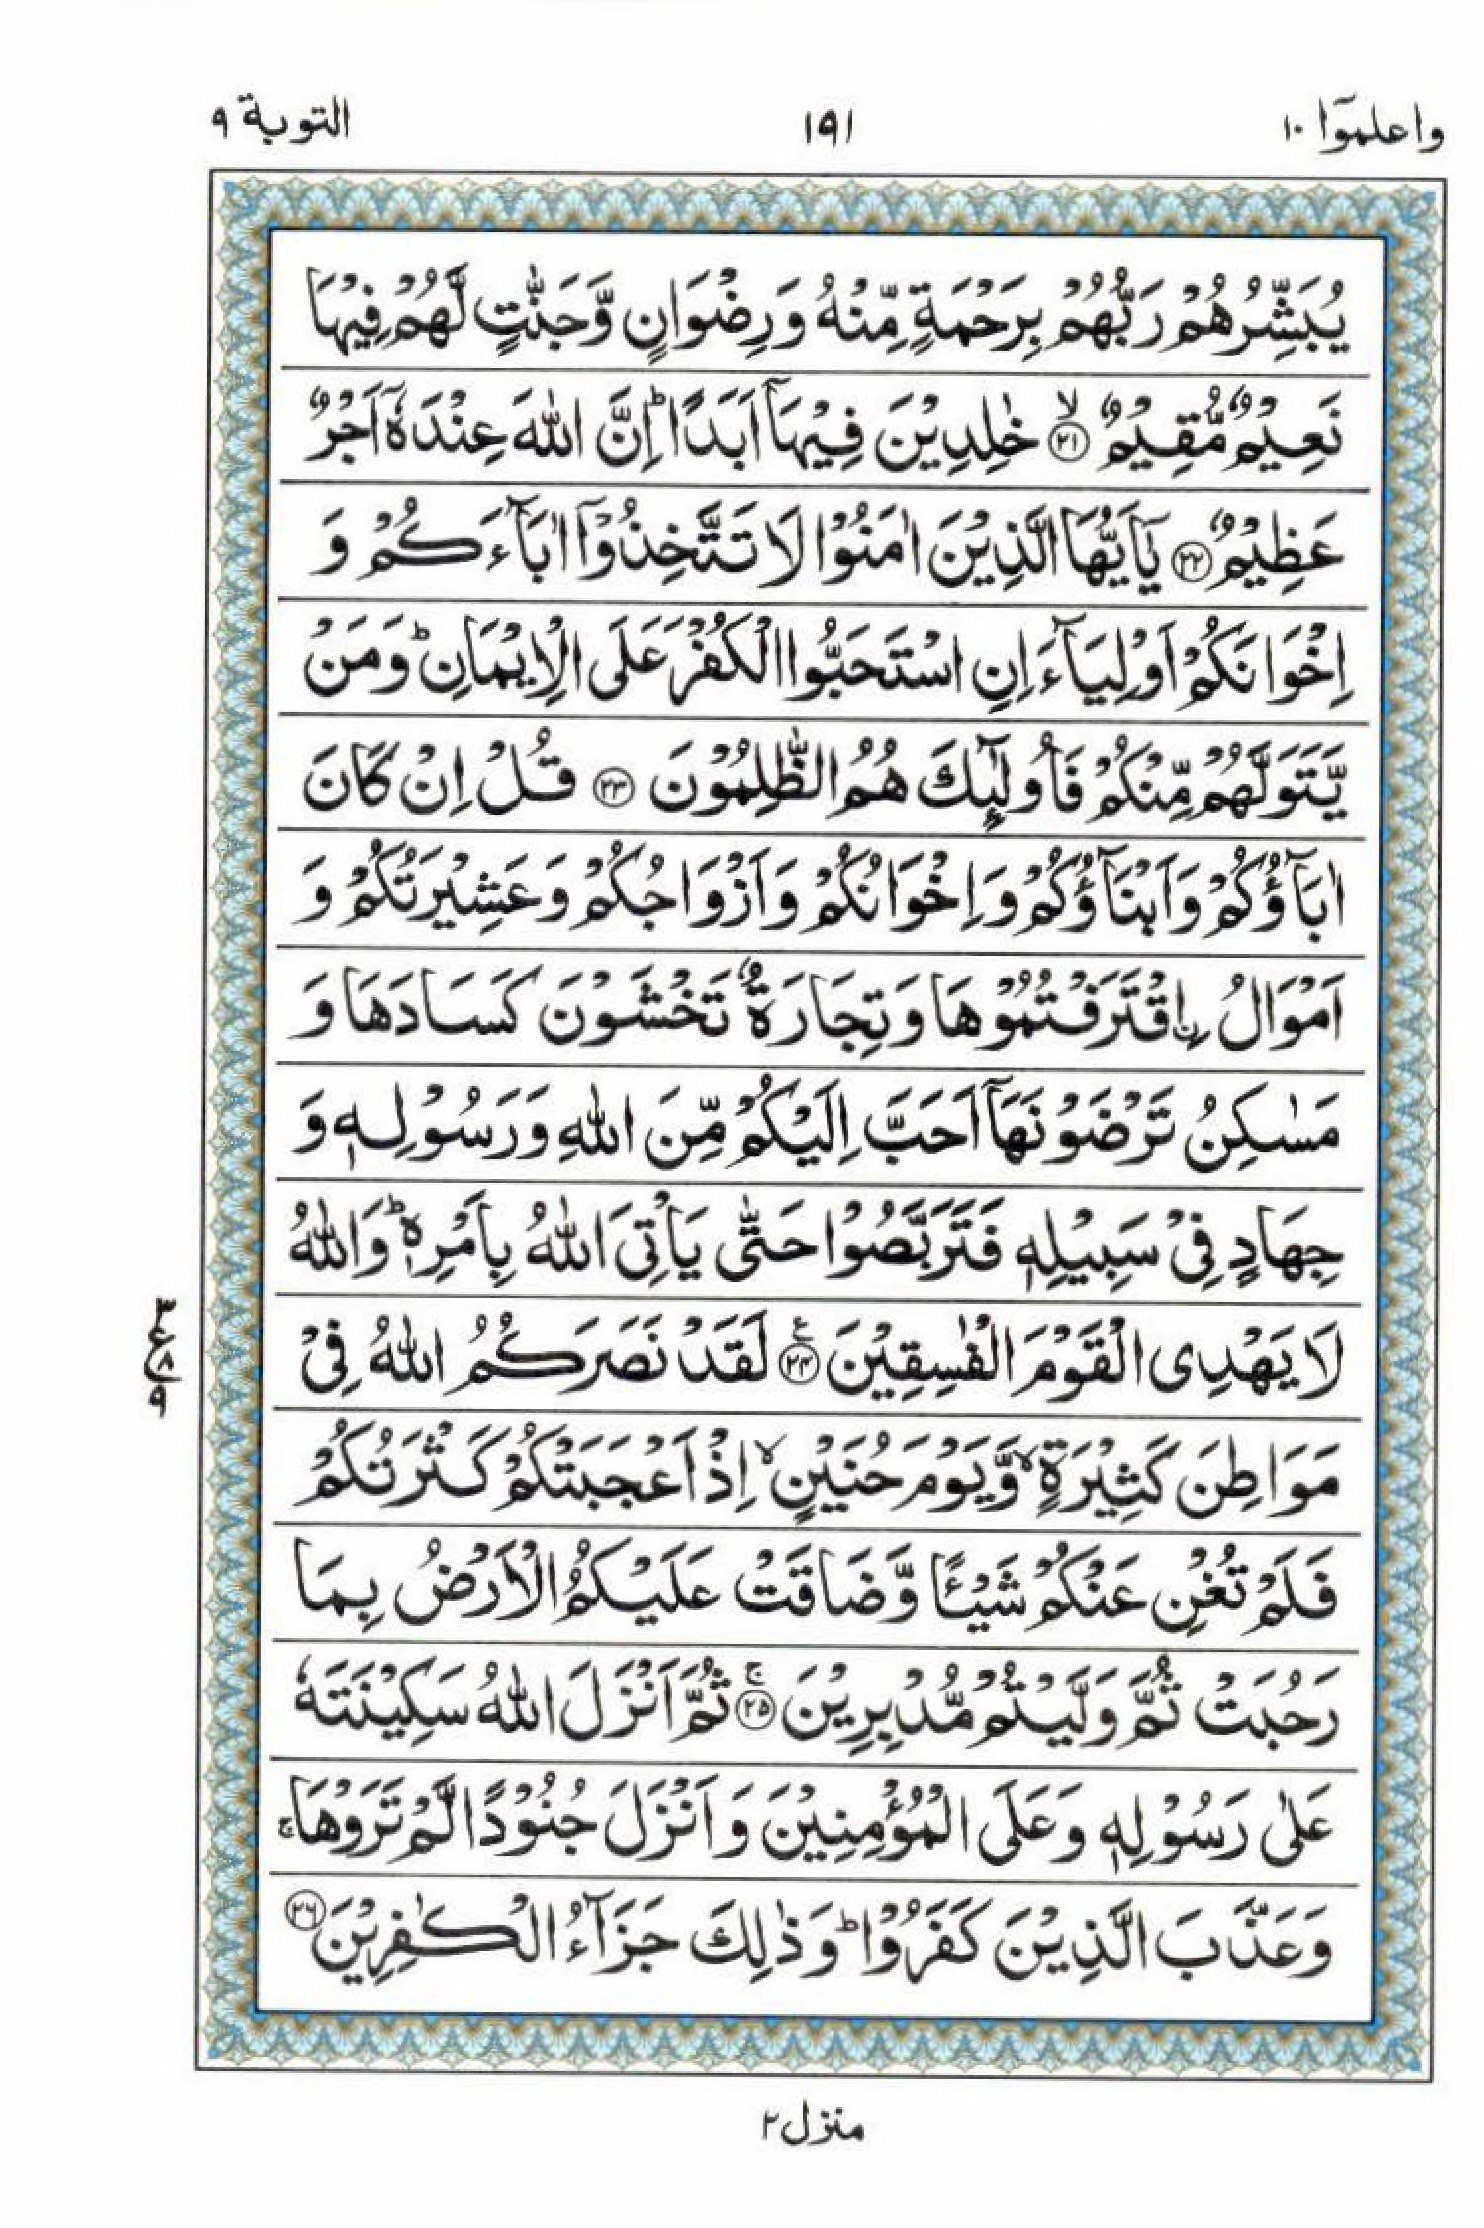 واعلموۤا ١٠
١٩١
التوبة ٩
يُبَشِّرُهُمْ رَبُّهُمْ بِرَحْمَةٍ مِّنْهُ وَرِضْوَانٍ وَّجَنّٰتٍ لَّهُمْ فِيْهَا
نَعِيْمٌ مُّقِيْمٌ ۙ‏﴿۲۱﴾ خٰلِدِيْنَ فِيْهَاۤ اَبَدًا ؕ اِنَّ اللّٰهَ عِنْدَهٗۤ اَجْرٌ
عَظِيْمٌ ﴿۲۲﴾ يٰۤاَيُّهَا الَّذِيْنَ اٰمَنُوْا لَا تَتَّخِذُوْۤا اٰبَآءَكُمْ وَ
اِخْوَانَكُمْ اَوْلِيَآءَ اِنِ اسْتَحَبُّوا الْكُفْرَ عَلَى الْاِيْمَانِ ؕ وَمَنْ
يَّتَوَلَّهُمْ مِّنْكُمْ فَاُولٰٓئِكَ هُمُ الظّٰلِمُوْنَ ﴿۲۳﴾ قُلْ اِنْ كَانَ
اٰبَآؤُكُمْ وَاَبْنَآؤُكُمْ وَاِخْوَانُكُمْ وَاَزْوَاجُكُمْ وَعَشِيْرَتُكُمْ وَ
اَمْوَالُ ۨاقْتَرَفْتُمُوْهَا وَتِجَارَةٌ تَخْشَوْنَ كَسَادَهَا وَ
مَسٰكِنُ تَرْضَوْنَهَاۤ اَحَبَّ اِلَيْكُمْ مِّنَ اللّٰهِ وَرَسُوْلِهٖ وَ
جِهَادٍ فِيْ سَبِيْلِهٖ فَتَرَبَّصُوْا حَتّٰى يَاْتِيَ اللّٰهُ بِاَمْرِهٖ ؕ وَاللّٰهُ
لَا يَهْدِى الْقَوْمَ الْفٰسِقِيْنَ ﴿۲۴﴾ ع لَقَدْ نَصَرَكُمُ اللّٰهُ فِيْ
مَوَاطِنَ كَثِيْرَةٍ ۙ وَّيَوْمَ حُنَيْنٍ ۙ اِذْ اَعْجَبَتْكُمْ كَثْرَتُكُمْ
فَلَمْ تُغْنِ عَنْكُمْ شَيْـًٔا وَّضَاقَتْ عَلَيْكُمُ الْاَرْضُ بِمَا
رَحُبَتْ ثُمَّ وَلَّيْتُمْ مُّدْبِرِيْنَ ۚ‏﴿۲۵﴾ ثُمَّ اَنْزَلَ اللّٰهُ سَكِيْنَتَهٗ
عَلٰى رَسُوْلِهٖ وَعَلَى الْمُؤْمِنِيْنَ وَاَنْزَلَ جُنُوْدًا لَّمْ تَرَوْهَا ۚ
وَعَذَّبَ الَّذِيْنَ كَفَرُوْا ؕ وَذٰلِكَ جَزَآءُ الْكٰفِرِيْنَ ﴿۲۶﴾
٣
ع ٨
٩
منزل ٢